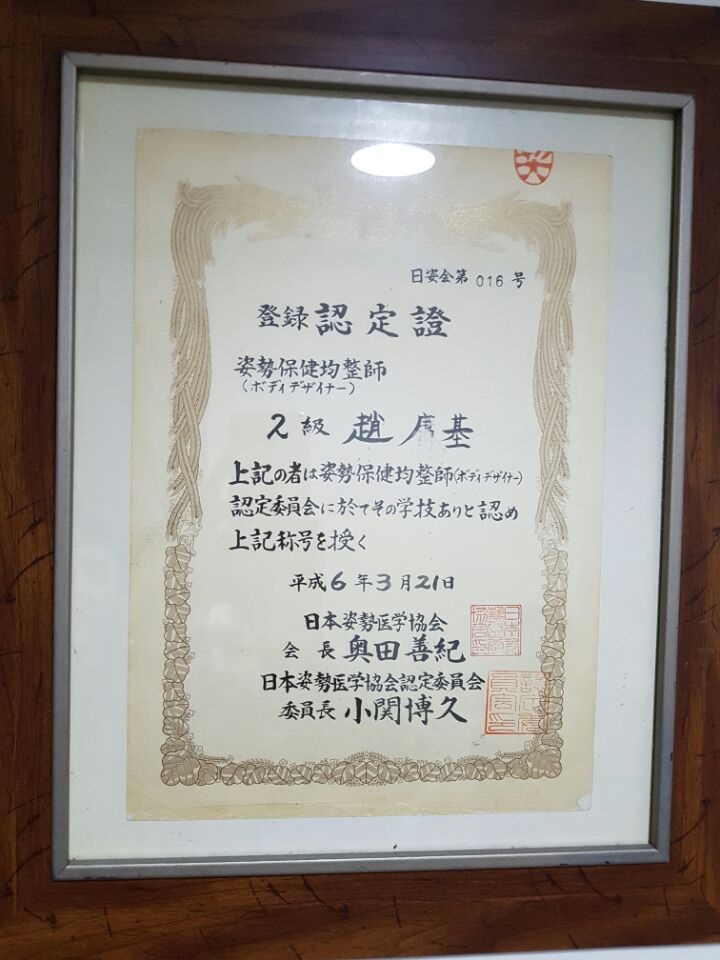 日姿会第 016 号
登録 認定證
姿勢保健均整師
(ボディデザイナー)
2級 趙 基
上記の者は姿勢保健均整師(ボディデザイナー)
認定委員会に於てその学技ありと認め
上記称号を授く
平成6年3月21日
日本姿勢医学協会
会長 奥田善紀
日本姿勢医学協会認定委員会
委員長 小関博久